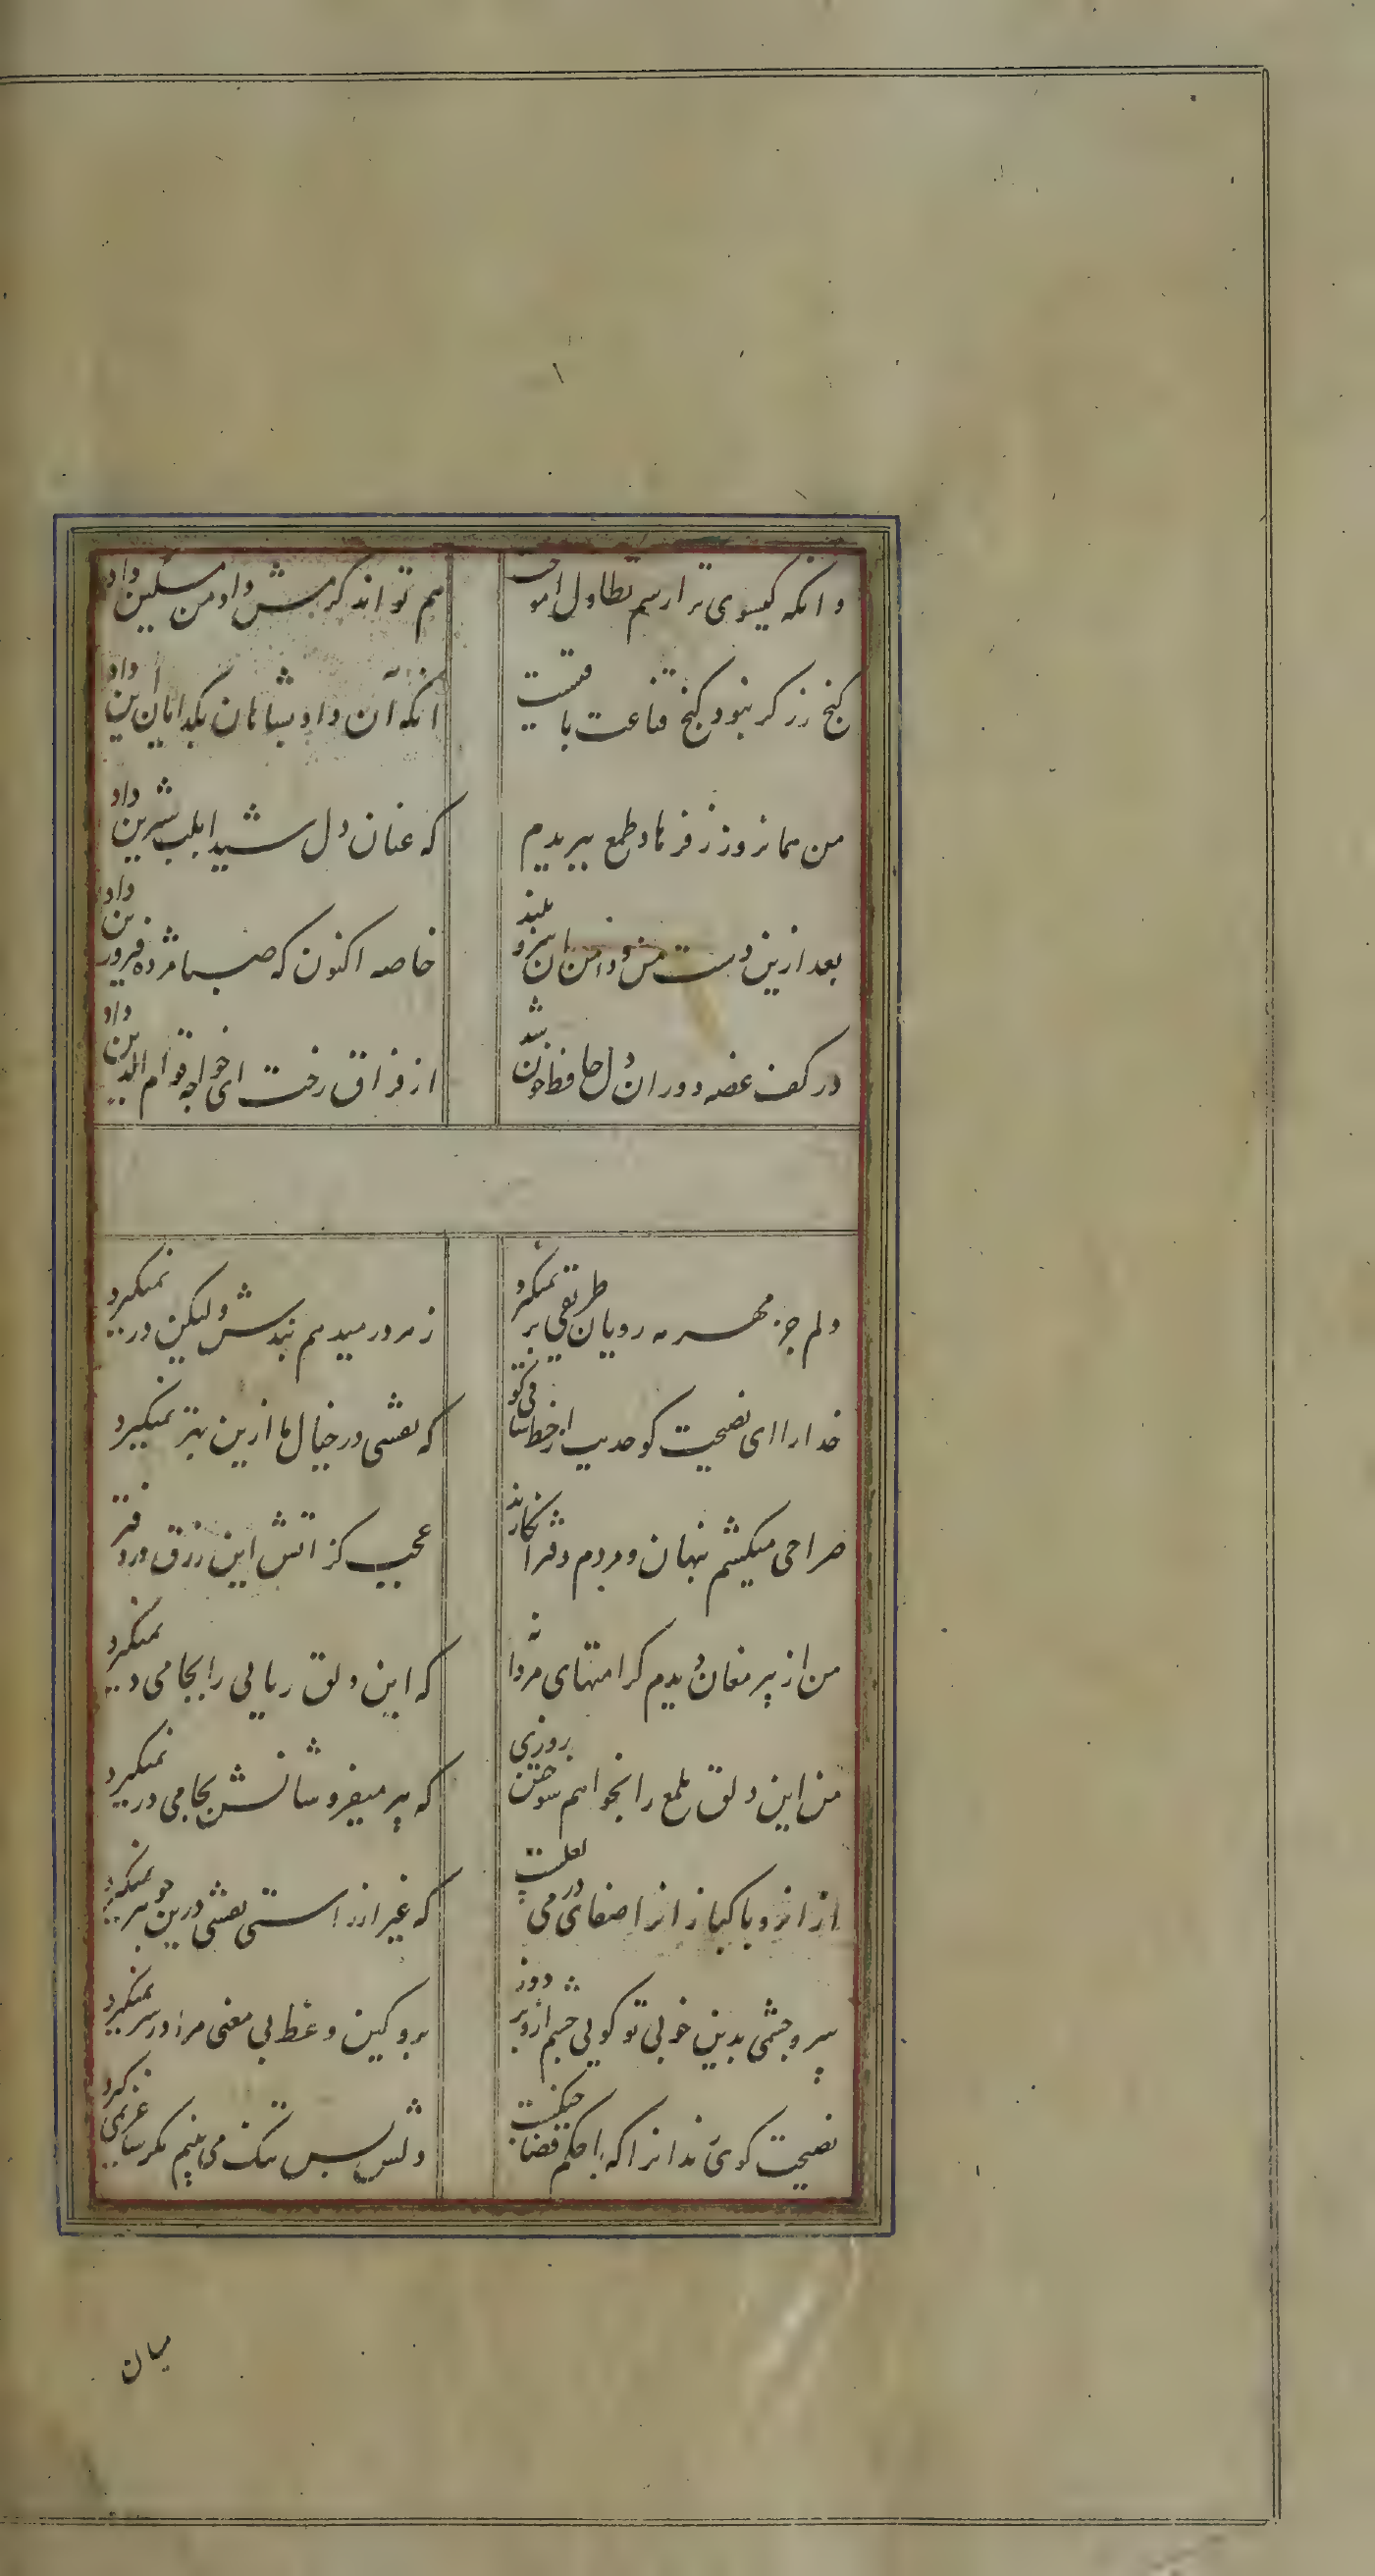 وانکه کیسوی ترا رسم تطاول اموخت
هم تواند کرمش داد من مسکین داد
کنج زر کر نبود کنج قناعت باقیست
انکه آن داد بشاهان بکدایان این داد
من همانروز ز فرهاد طمع ببریدم
که عنان دل شیدا بلب شیرین داد
بعد ازین دست من و دامن ان سرو بلند
خاصه اکنون که صبا مژده فروردین داد
در کف غصه دوران دل حافظ خون شد
از فراق رخت ای خواجه قوام الدین داد
دلم جز مهر مه رویان طریقی بر نمیکیرد
ز هر در میدهم پندش ولیکن در نمیکیرد
خدارا ای نصیحت کو حدیث از خط ساقی کو
که نقشی در خیال ما ازین بهتر نمیکیرد
صراحی میکشم پنهان و مردم دفتر انکارند
عجب کز اتش این زرق در دفتر
من از پیر مغان دیدم کرامتهای مردانه
که این دلق ریایی را بجامی در نمیکیرد
من این دلق ملمع را بخواهم سوختن روزی
که پیر میفروشانش بجامی در نمیکیرد
از انرو پاکبازانرا صفای می در لعلست
که غیر از راستی نقشی درین جوهر نمیکیرد
سر و چشمی بدین خوبی تو کویی چشم ازو بر دوز
برو کین وعظ بی معنی مرا در سر نمیکیرد
نصیحت کوی ندانرا که با حکم قضا جنکست
دلش بس تنک می بینم مکر ساغر نمی کیرد
میان